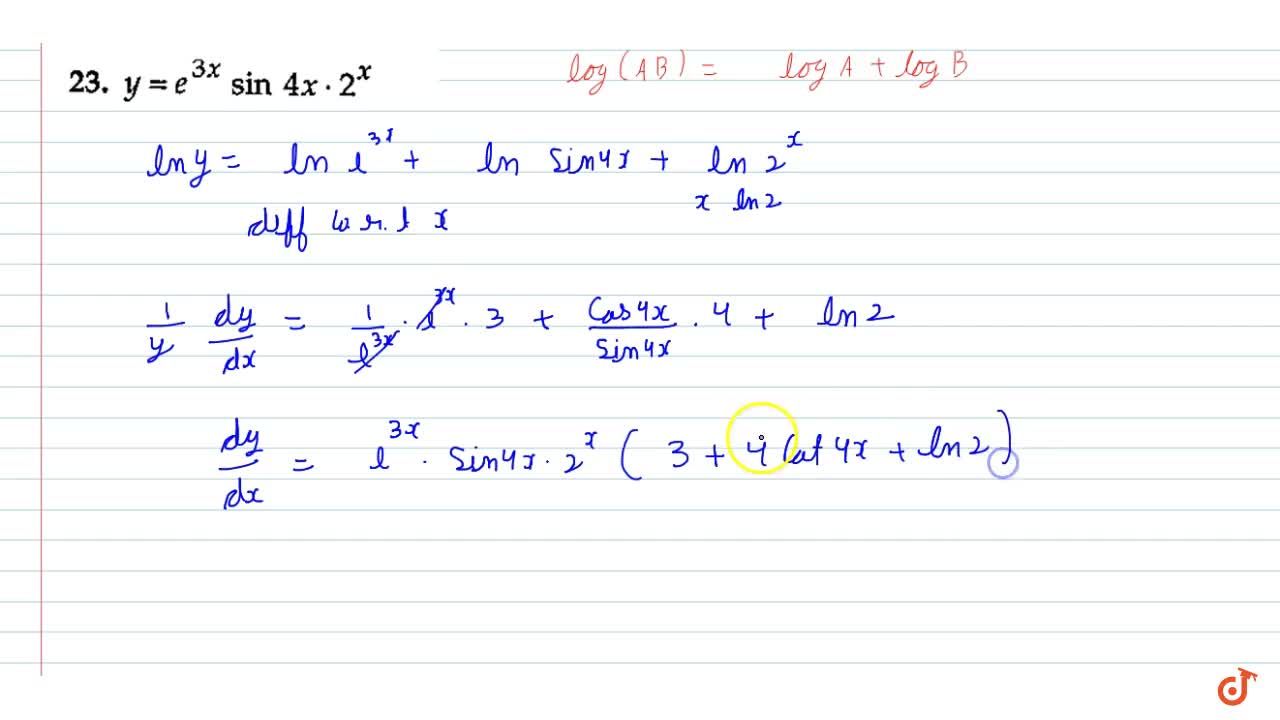 23. y = e^{3x} sin 4x · 2^x
log(AB) = log A + log B
ln y = ln e^{3x} + ln sin4x + ln 2^x
x ln2
diff w.r.t x
1/y dy/dx = 1/e^{3x} · e^{3x} · 3 + Cos4x/Sin4x · 4 + ln2
dy/dx = e^{3x} · Sin4x · 2^x ( 3 + 4 Cot 4x + ln2 )